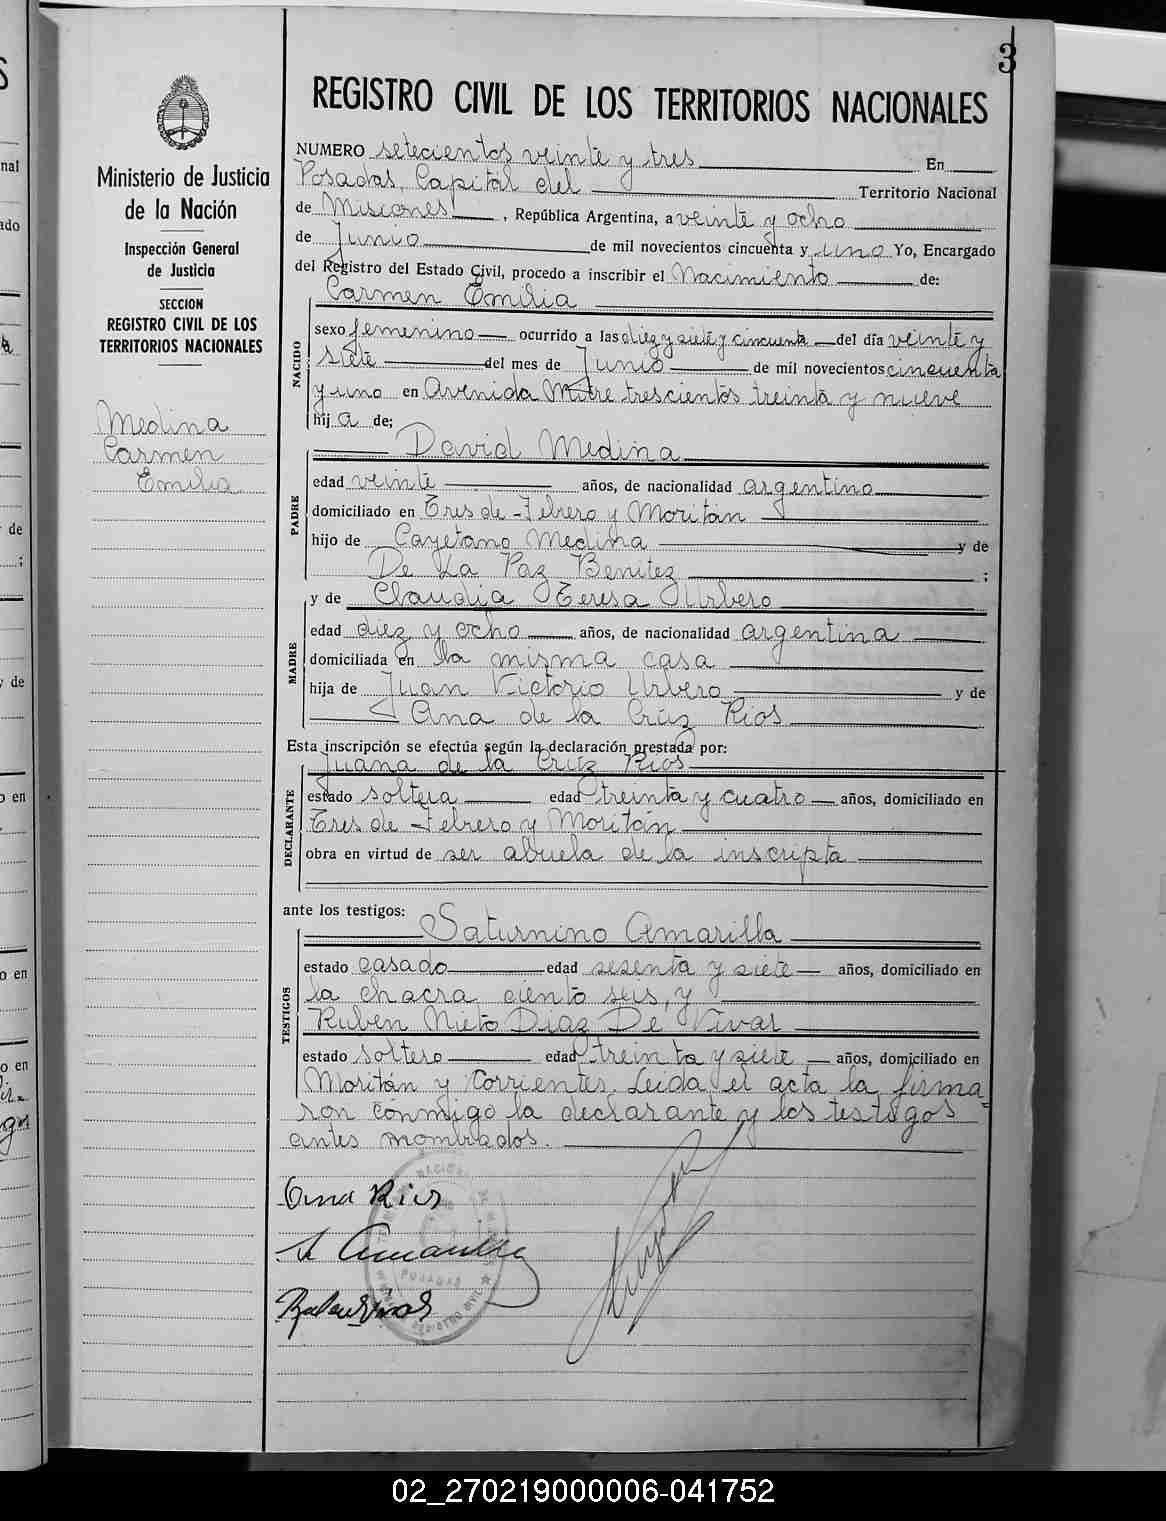 3
REGISTRO CIVIL DE LOS TERRITORIOS NACIONALES
Ministerio de Justicia
de la Nación
Inspección General
de Justicia
SECCION
REGISTRO CIVIL DE LOS
TERRITORIOS NACIONALES
Medina
Carmen
Emilia
NUMERO setecientos veinte y tres En
Posadas, Capital del Territorio Nacional
de Misiones, República Argentina, a veinte y ocho
de Junio de mil novecientos cincuenta y uno Yo, Encargado
del Registro del Estado Civil, procedo a inscribir el Nacimiento de:
Carmen Emilia
NACIDO
sexo femenino ocurrido a las diez y siete y cincuenta del día veinte y
siete del mes de Junio de mil novecientos cincuenta
y uno en Avenida Mitre trescientos treinta y nueve
hij a de;
David Medina
PADRE
edad veinte años, de nacionalidad argentino
domiciliado en Tres de Febrero y Moritán
hijo de Cayetano Medina y de
De La Paz Benitez ;
y de Claudia Teresa Urbero
MADRE
edad diez y ocho años, de nacionalidad argentina
domiciliada en la misma casa
hija de Juan Victorio Urbero y de
Ana de la Cruz Rios
Esta inscripción se efectúa según la declaración prestada por:
Juana de la Cruz Rios
DECLARANTE
estado soltera edad treinta y cuatro años, domiciliado en
Tres de Febrero y Moritán
obra en virtud de ser abuela de la inscripta
ante los testigos:
Saturnino Amarilla
TESTIGOS
estado casado edad sesenta y siete años, domiciliado en
la chacra ciento seis, y
Ruben Nieto Diaz De Vivar
estado soltero edad treinta y siete años, domiciliado en
Moritán y Corrientes. Leida el acta la firma=
ron conmigo la declarante y los testigos
antes nombrados.
Ana Rios
S. Amarilla
POSADAS
REGISTRO CIVIL
02_270219000006-041752